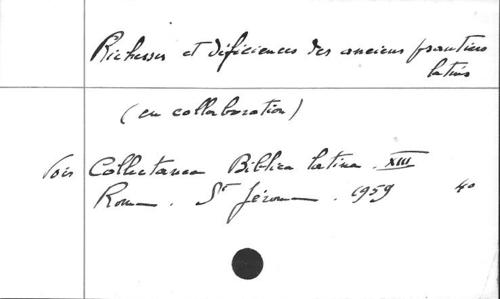 Richesses et déficiences des anciens psautiers
latins
(en collaboration)
Voir Collectanea Biblica latina. XIII
Roma. St Jérome. 1959 40